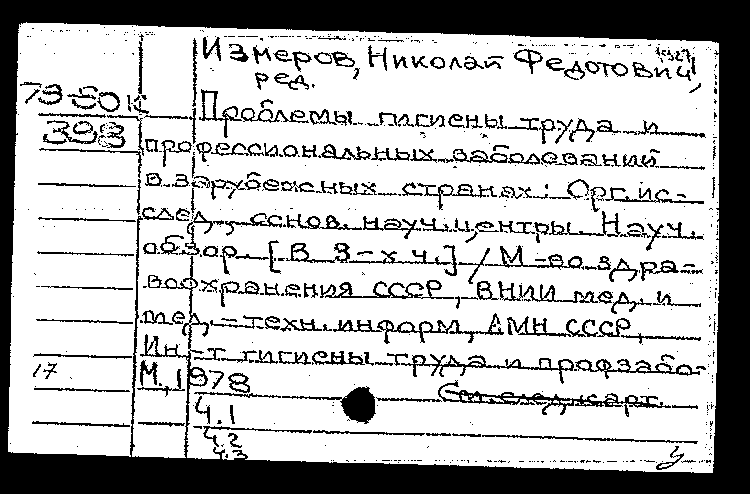 1927
Измеров, Николай Федотович,
ред.
79-50к
398
Проблемы гигиены труда и
профессиональных заболеваний
в зарубежных странах: Орг. ис-
след., основ. науч. центры. Науч.
обзор. [В 3-х ч.] / М-во здра-
воохранения СССР, ВНИИ мед. и
мед.-техн. информ, АМН СССР,
Ин-т гигиены труда и профзабо-
17
М., 1978
См. след. карт.
Ч.1
Ч.2
Ч.3
у